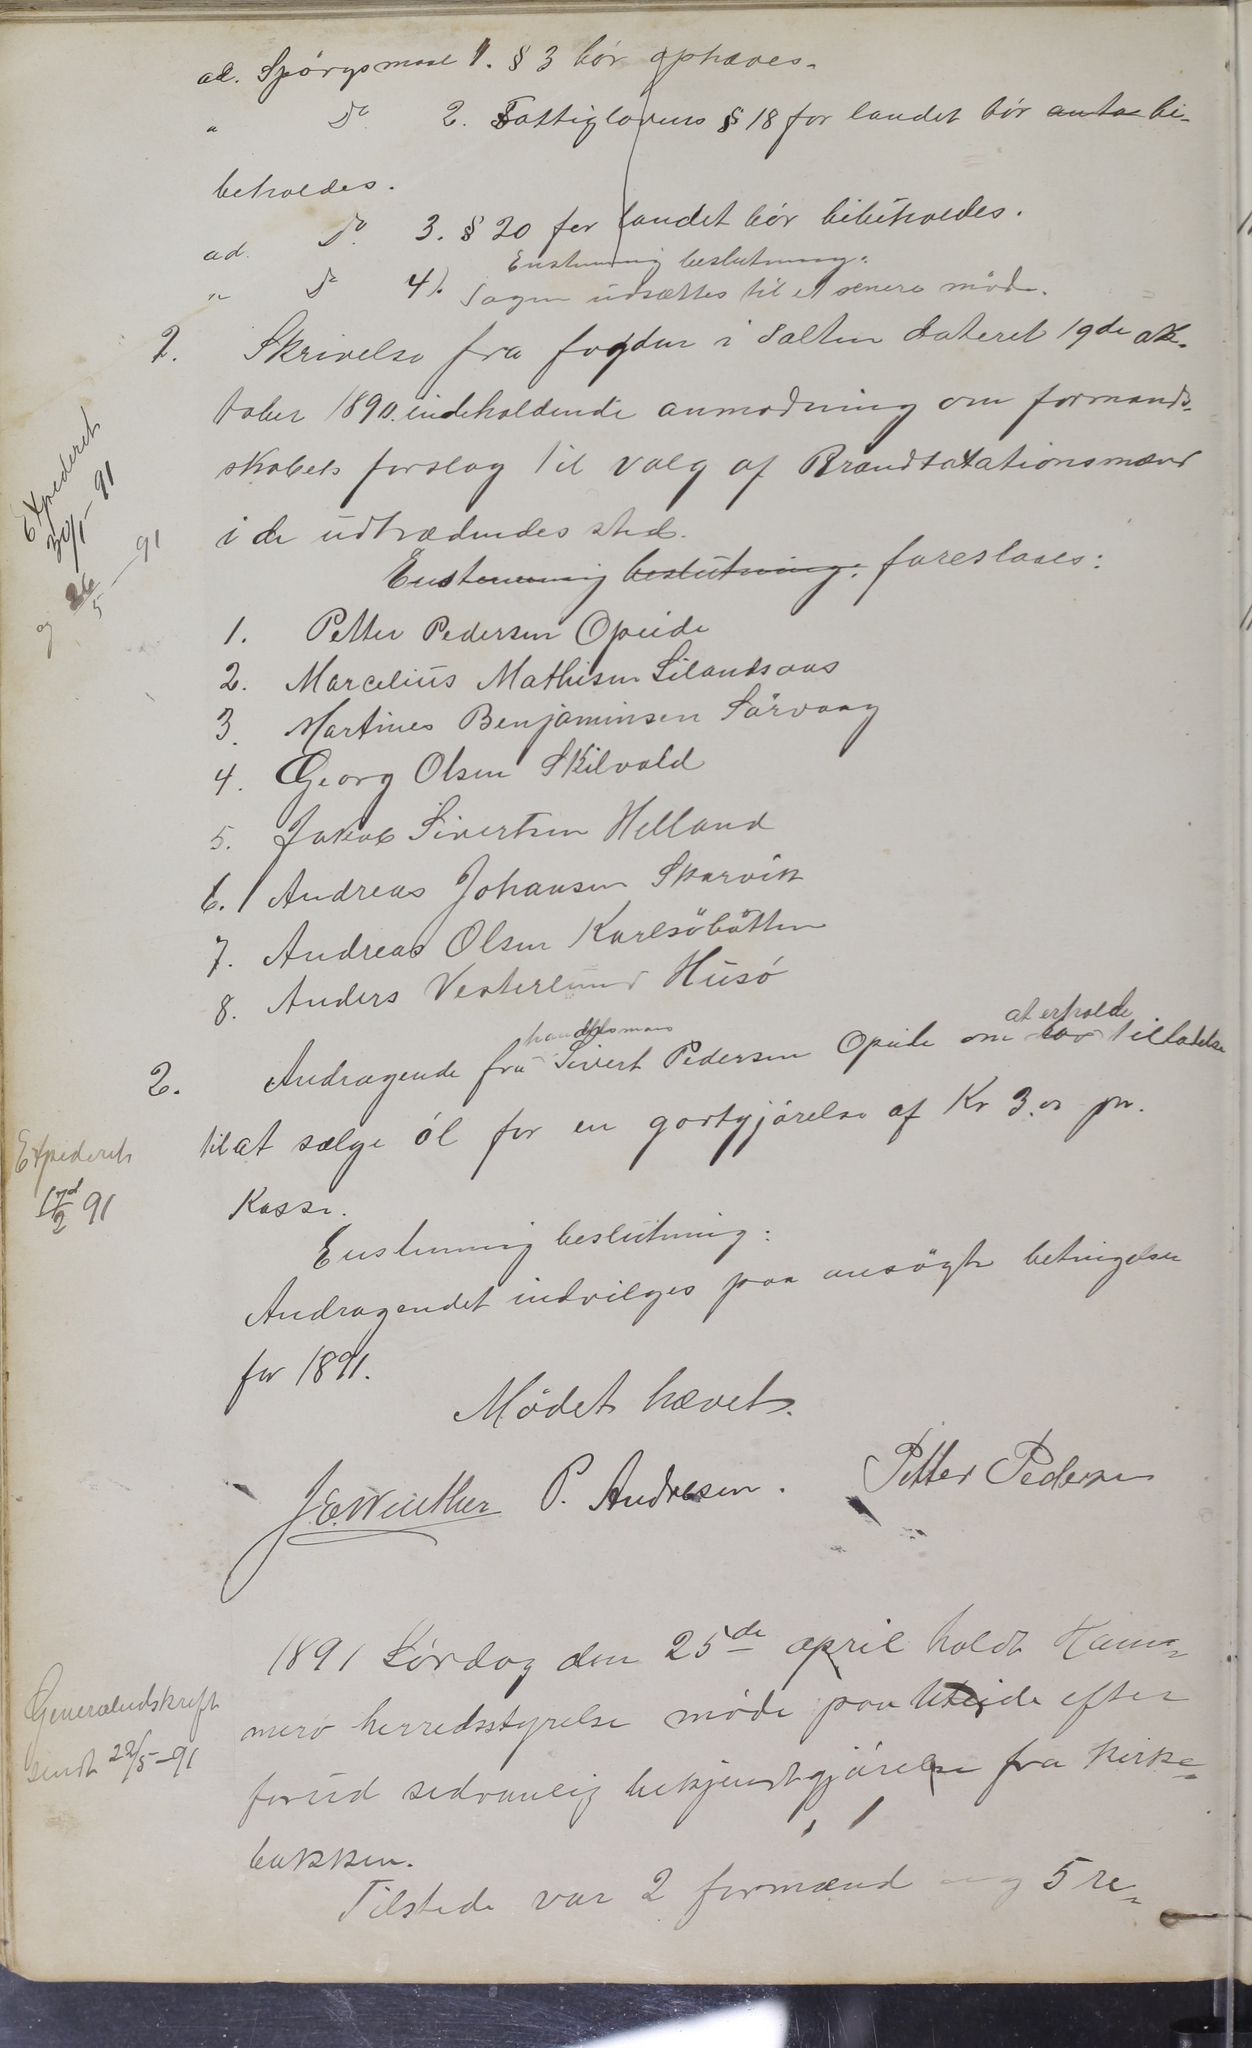 ad. Spørgsmaal 1. § 3 bør ophæves.
" Do 2. Fattiglovens § 18 for landet bør anta bi-
beholdes.
ad. Do 3. § 20 for landet bør bibeholdes.
Enstemmig beslutning:
" Do 4). Sagen udsættes til et senere møde.
1. Skrivelse fra fogden i Salten dateret 19de ok-
tober 1890 indeholdende anmodning om formand-
skabets forslag til valg af Brandtaxationsmænd
i de udtrædendes sted.
Expederet
30/1-91
og 26/5-91
Enstemmig beslutning: foreslaaes:
1. Petter Pedersen Opeide
2. Marcelius Mathisen Lilandsaas
3. Martines Benjaminsen Sørvaag
4. Georg Olsen Skilvold
5. Jakob Sivertsen Helland
6. Andreas Johansen Skarvik
7. Andreas Olsen Karlsøbøtten
8. Anders Vesterlund Husø
handelsmand at erholde
2. Andragende fra Sivert Pedersen Opeide om tilladelse
til at sælge øl for en godtgjørelse af Kr 3.00 pr.
Kasse.
Expederet
17/2 91
Enstemmig beslutning:
Andragendet indvilges paa ansøgte betingelser
for 1891.
Mødet hævet.
J.E. Winther P. Andresen. Petter Pedersen
1891 Lørdag den 25de april holdt Ham-
merø herredsstyrelse møde paa Uteide efter
forud sedvanlig bekjendtgjørelse fra kirke-
bakken.
Generaludskrift
sendt 22/5-91
Tilstede var 2 formænd og 5 re-